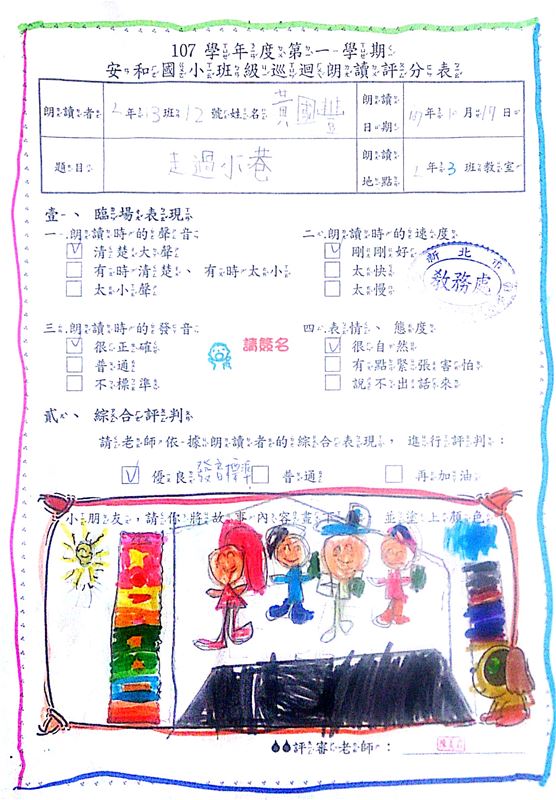 107學年度第一學期
安和國小班級巡迴朗讀評分表
朗讀者 2年13班12號姓名 黃國豐 朗讀日期 107年10月19日
題目 走過小巷 朗讀地點 2年3班教室
壹、臨場表現
一、朗讀時的聲音 二、朗讀時的速度
清楚大聲 剛剛好
有時清楚、有時太小 太快
太小聲 太慢
新北市
教務處
三、朗讀時的發音 四、表情、態度
很正確 很自然
普通 有點緊張害怕
不標準 說不出話來
請簽名
貳、綜合評判
請老師依據朗讀者的綜合表現，進行評判：
優良 發音標準 普通 再加油
小朋友，請你將故事內容畫下來，並塗上顏色
評審老師：